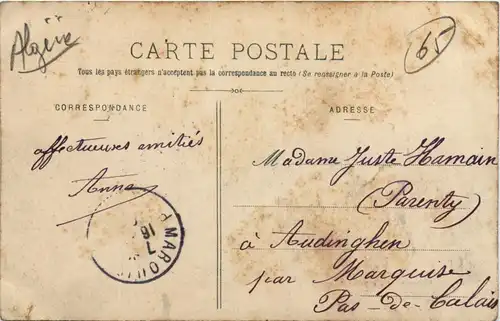 Algérie
65
CARTE POSTALE
Tous les pays étrangers n'acceptent pas la correspondance au recto (Se renseigner à la Poste)
CORRESPONDANCE
affectueuses amitiés
Anna
MARQUI
16
7
ADRESSE
Madame Juste Hamain
(Parenty)
à Audinghen
par Marquise
Pas-de-Calais